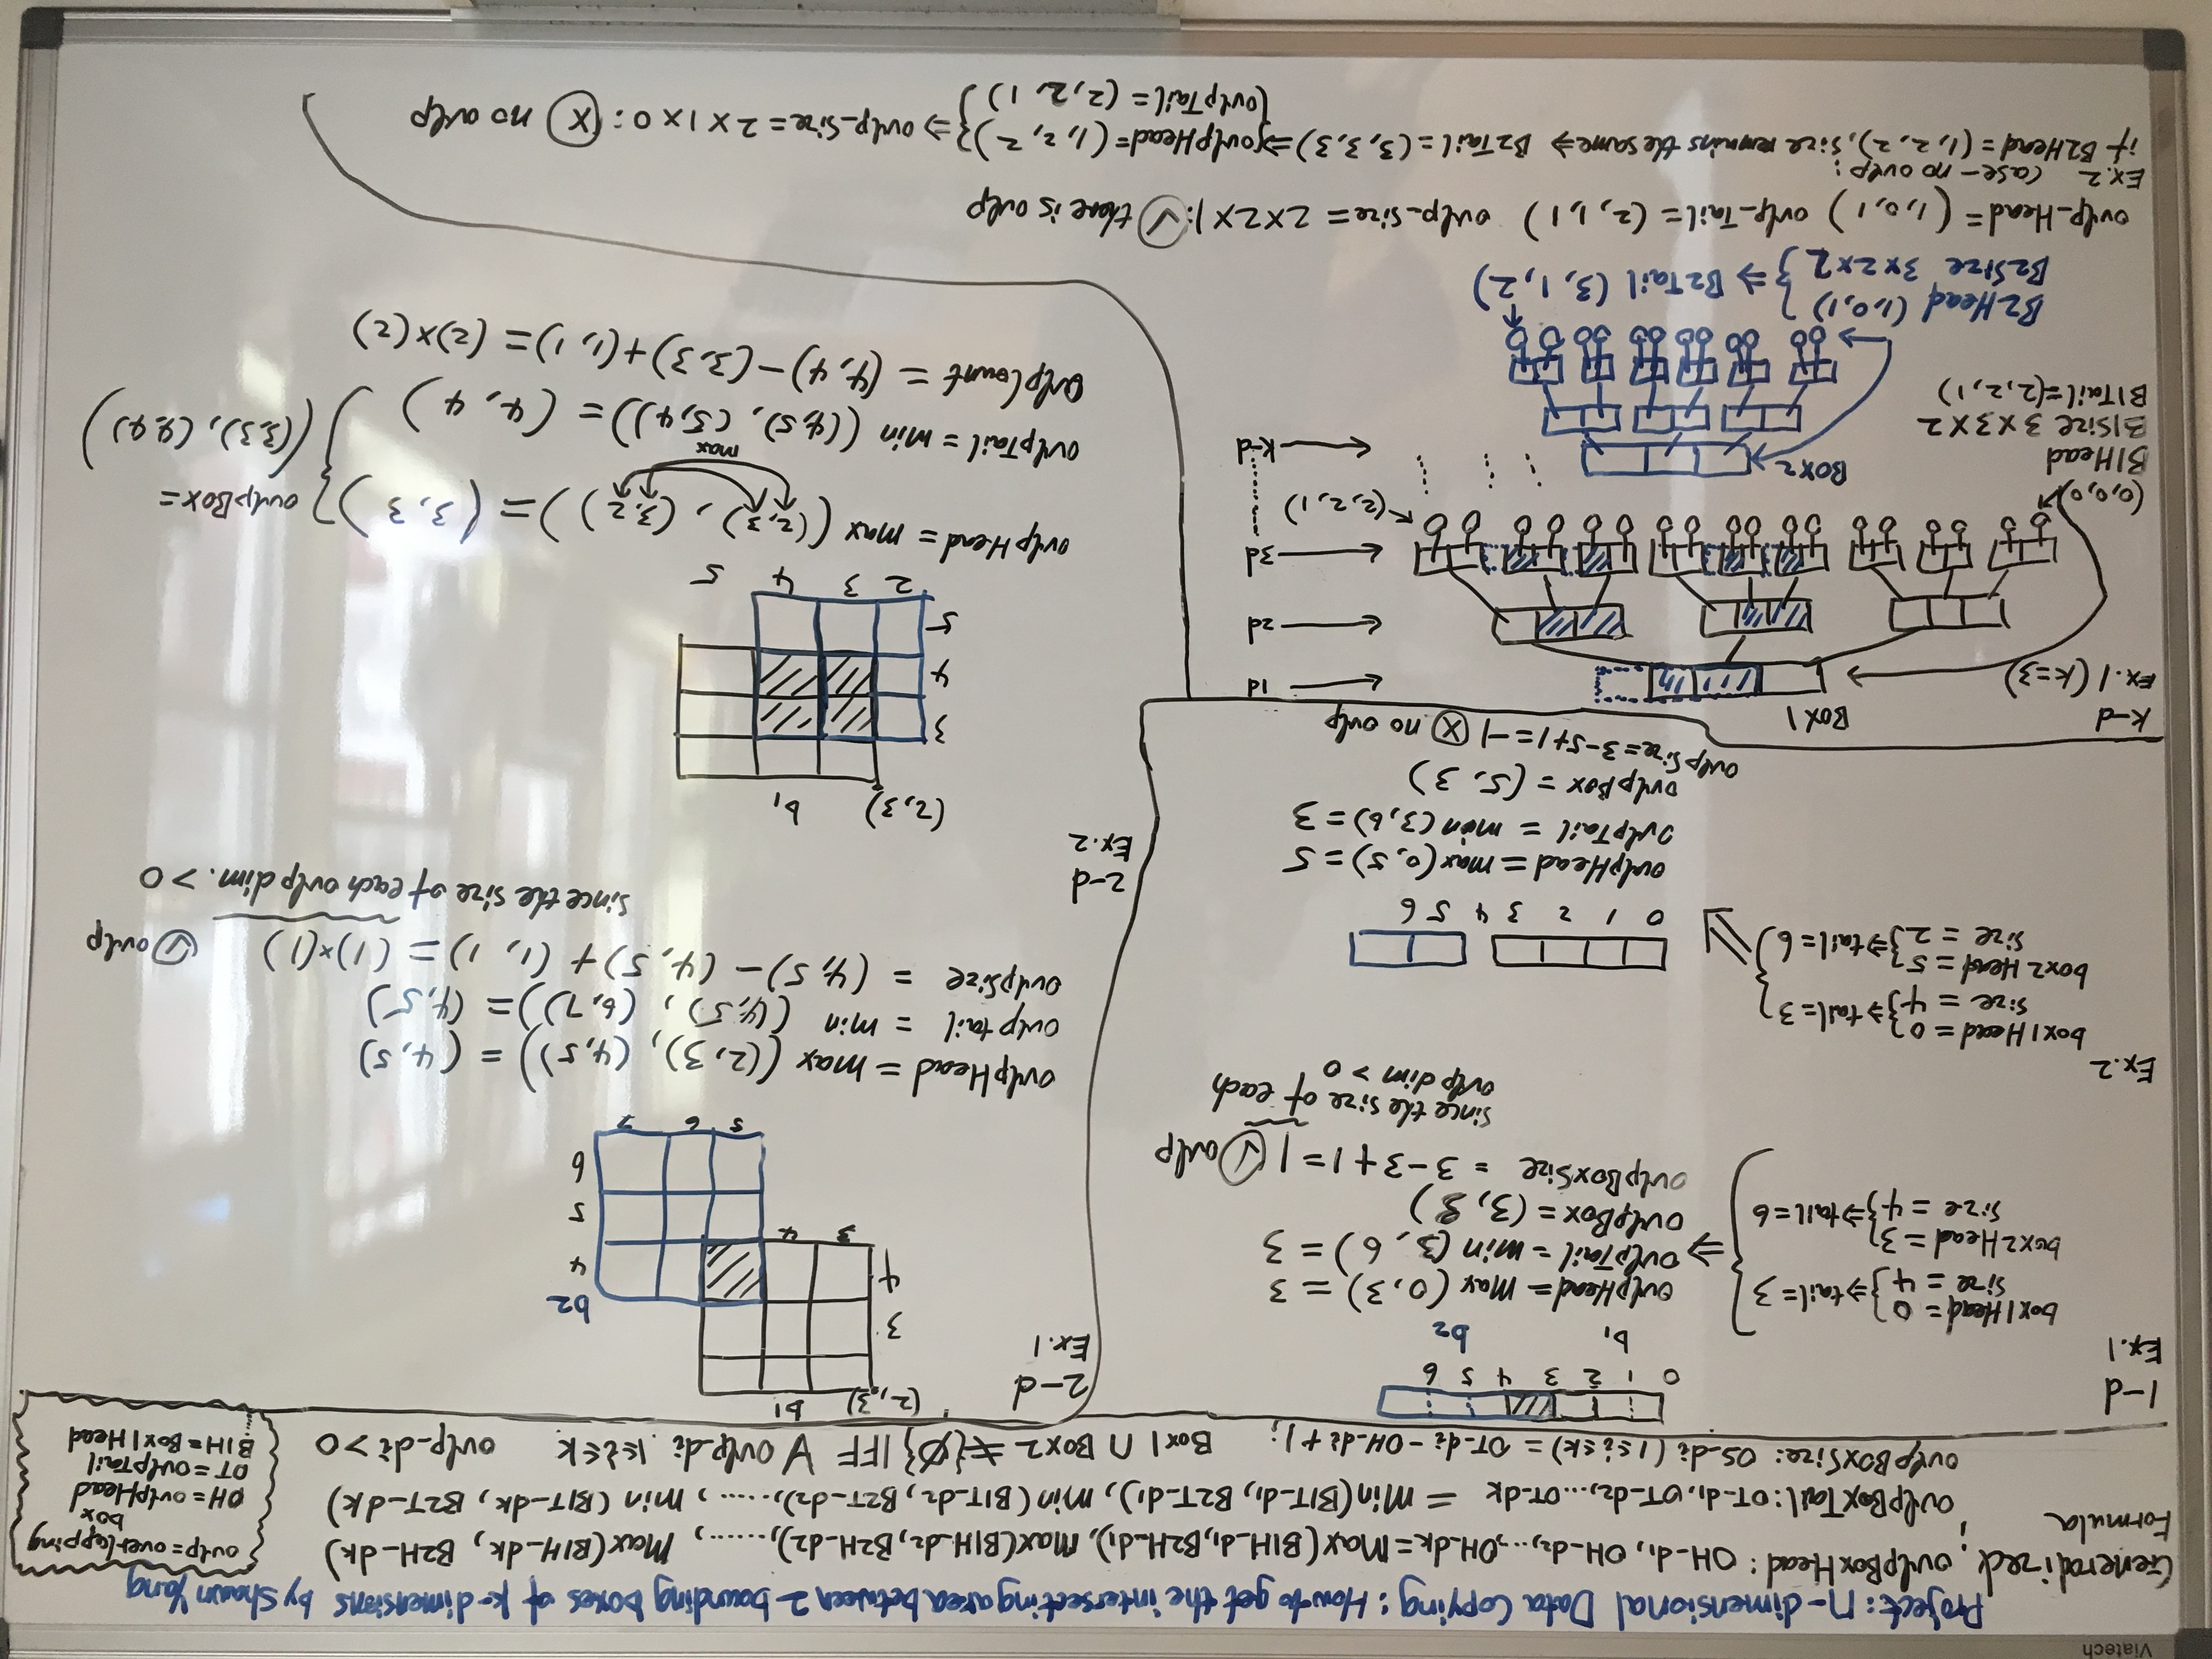 Viatech
Project: n-dimensional Data Copying: How to get the intersecting area between 2 bounding boxes of k-dimensions by Shawn Yang
Generalized Formula:
ovlpBoxHead: OH_d1, OH_d2,...,OH_dk = Max(B1H_d1, B2H_d1), Max(B1H_d2, B2H_d2),......, Max(B1H_dk, B2H_dk)
ovlpBoxTail: OT_d1, OT_d2,...OT_dk = min(B1T_d1, B2T_d1), min(B1T_d2, B2T_d2),....., min(B1T_dk, B2T_dk)
ovlpBoxSize: OS_di (1≤i≤k) = OT_di - OH_di + 1; Box1 ∩ Box2 ≠ {∅} IFF ∀ ovlp_di 1≤i≤k ovlp_di > 0
ovlp = overlapping
box
OH = ovlpHead
OT = ovlpTail
B1H = Box1 Head
1-d
Ex.1
0 1 2 3 4 5 6
b1 b2
box1Head = 0
size = 4 } ⇒ tail = 3
box2Head = 3
size = 4 } ⇒ tail = 6
⇒
ovlpHead = Max (0, 3) = 3
ovlpTail = min (3, 6) = 3
ovlpBox = (3, 3)
ovlpBoxSize = 3 - 3 + 1 = 1 ✓ ovlp
since the size of each
ovlp dim > 0
Ex.2
box1Head = 0
size = 4 } ⇒ tail = 3
box2Head = 5
size = 2 } ⇒ tail = 6
0 1 2 3 4 5 6
ovlpHead = max(0, 5) = 5
ovlpTail = min(3, 6) = 3
ovlpBox = (5, 3)
ovlpSize = 3 - 5 + 1 = -1 X no ovlp
2-d
Ex.1
(2, 3) b1
3
4
3 4
b2
4
5
6
5 6 7
ovlpHead = max ((2, 3), (4, 5)) = (4, 5)
ovlptail = min ((4, 5), (6, 7)) = (4, 5)
ovlpSize = (4, 5) - (4, 5) + (1, 1) = (1)×(1) ✓ ovlp
since the size of each ovlp dim. > 0
2-d
Ex.2
(2, 3) b1
3
4
5
2 3 4 5
ovlpHead = max ((2, 3), (3, 2)) = (3, 3)
max
ovlpTail = min ((4, 5), (5, 4)) = (4, 4)
ovlpBox =
((3,3), (4,4))
ovlpCount = (4, 4) - (3, 3) + (1, 1) = (2)×(2)
k-d
Ex.1 (k=3)
Box 1
1d
2d
3d
k-d
(0,0,0)
(2, 2, 1)
B1Head
B1Size 3×3×2
B1Tail=(2,2,1)
Box 2
B2Head (1,0,1)
B2Size 3×2×2 } ⇒ B2Tail (3, 1, 2)
ovlp_Head = (1, 0, 1) ovlp_Tail = (2, 1, 1) ovlp_size = 2×2×1: ✓ there is ovlp
Ex.2 case - no ovlp:
if B2Head = (1, 2, 2), size remains the same ⇒ B2Tail = (3, 3, 3) ⇒ { ovlpHead = (1, 2, 2)
ovlpTail = (2, 2, 1) } ⇒ ovlp_Size = 2 × 1 × 0 : X no ovlp